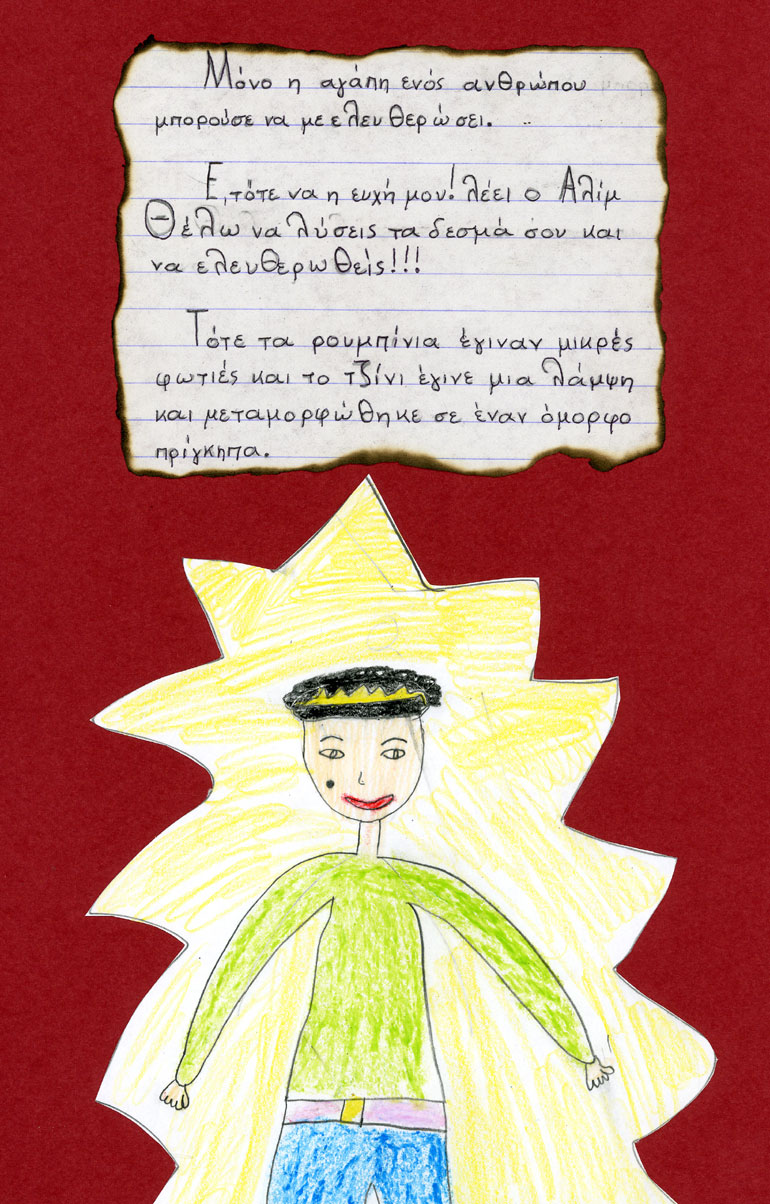 Μόνο η αγάπη ενός ανθρώπου
μπορούσε να με ελευθερώσει.
Ε, τότε να η ευχή μου! λέει ο Αλίμ
Θέλω να λύσεις τα δεσμά σου και
να ελευθερωθείς!!!
Τότε τα ρουμπίνια έγιναν μικρές
φωτιές και το τζίνι έγινε μια λάμψη
και μεταμορφώθηκε σε έναν όμορφο
πρίγκηπα.